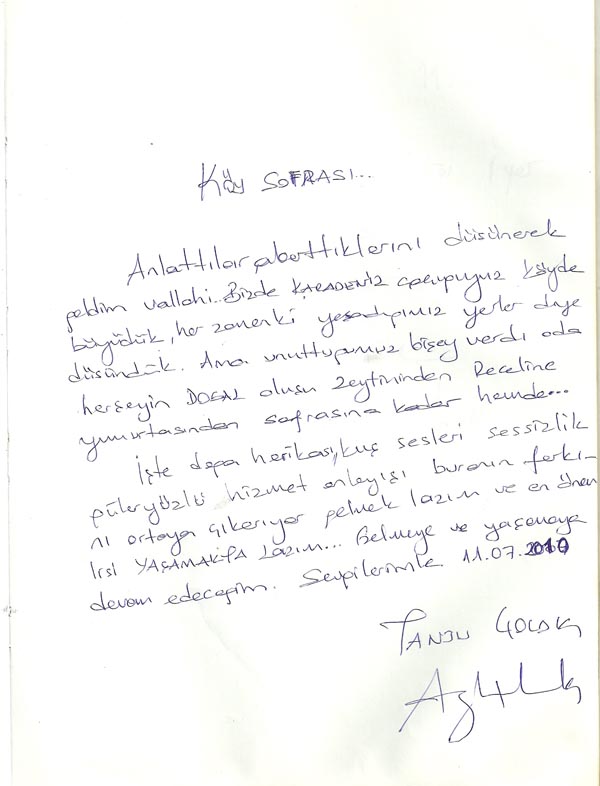 Köy SOFRASI...
Anlattılar, abarttıklarını düşünerek
geldim vallahi. Bizde KARADENİZ çocuğuyuz köyde
büyüdük, her zamanki yaşadığımız yerler diye
düşündük. Ama unuttuğumuz bişey vardı oda
herşeyin DOĞAL oluşu zeytininden Reçeline
yumurtasından sofrasına kadar hemde...
İşte doğa harikası, kuş sesleri sessizlik
güleryüzlü hizmet anlayışı buranın farkı-
nı ortaya çıkarıyor gelmek lazım ve en önem
lisi YAŞAMAKTA LAZIM... Gelmeye ve yaşamaya
devam edeceğim. Sevgilerimle 11.07.2010
TANJU ÇOLAK